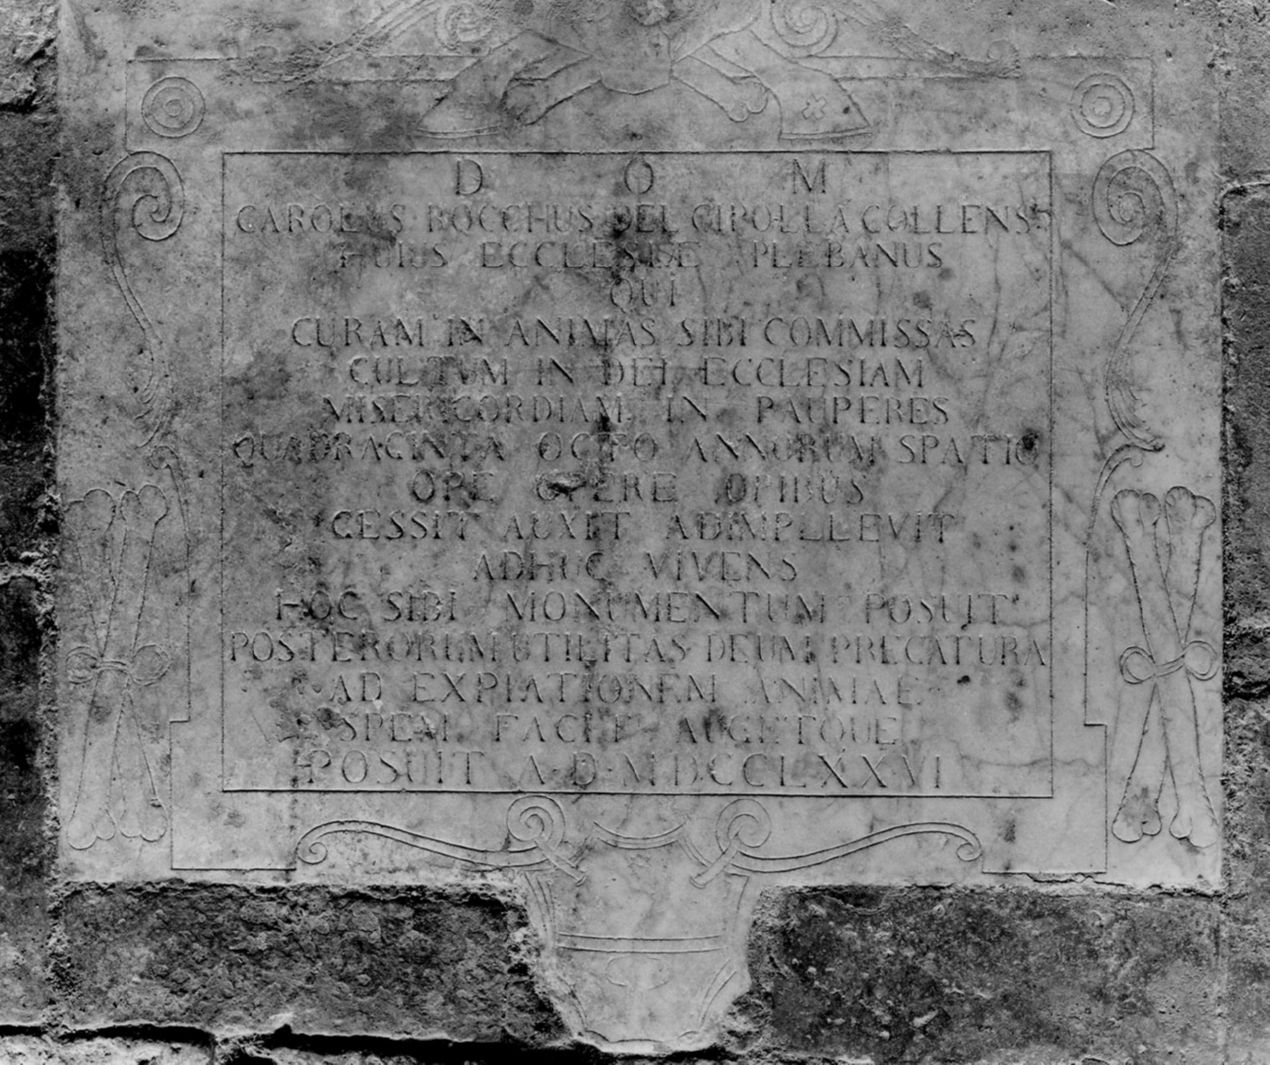 D O M
CAROLUS ROCCHUS DEL CIPOLLA COLLENSIS
HUIUS ECCLESIAE PLEBANUS
QUI
CURAM IN ANIMAS SIBI COMMISSAS
CULTUM IN DEI ECCLESIAM
MISERICORDIAM IN PAUPERES
QUADRAGINTA OCTO ANNORUM SPATIO
OPE OPERE OPIBUS
GESSIT AUXIT ADIMPLEVIT
ADHUC VIVENS
HOC SIBI MONUMENTUM POSUIT
POSTERORUM UTILITAS DEUM PRECATURA
AD EXPIATIONEM ANIMAE
SPEM FACIT AUGETQUE
POSUIT A D MDCCLXXVI